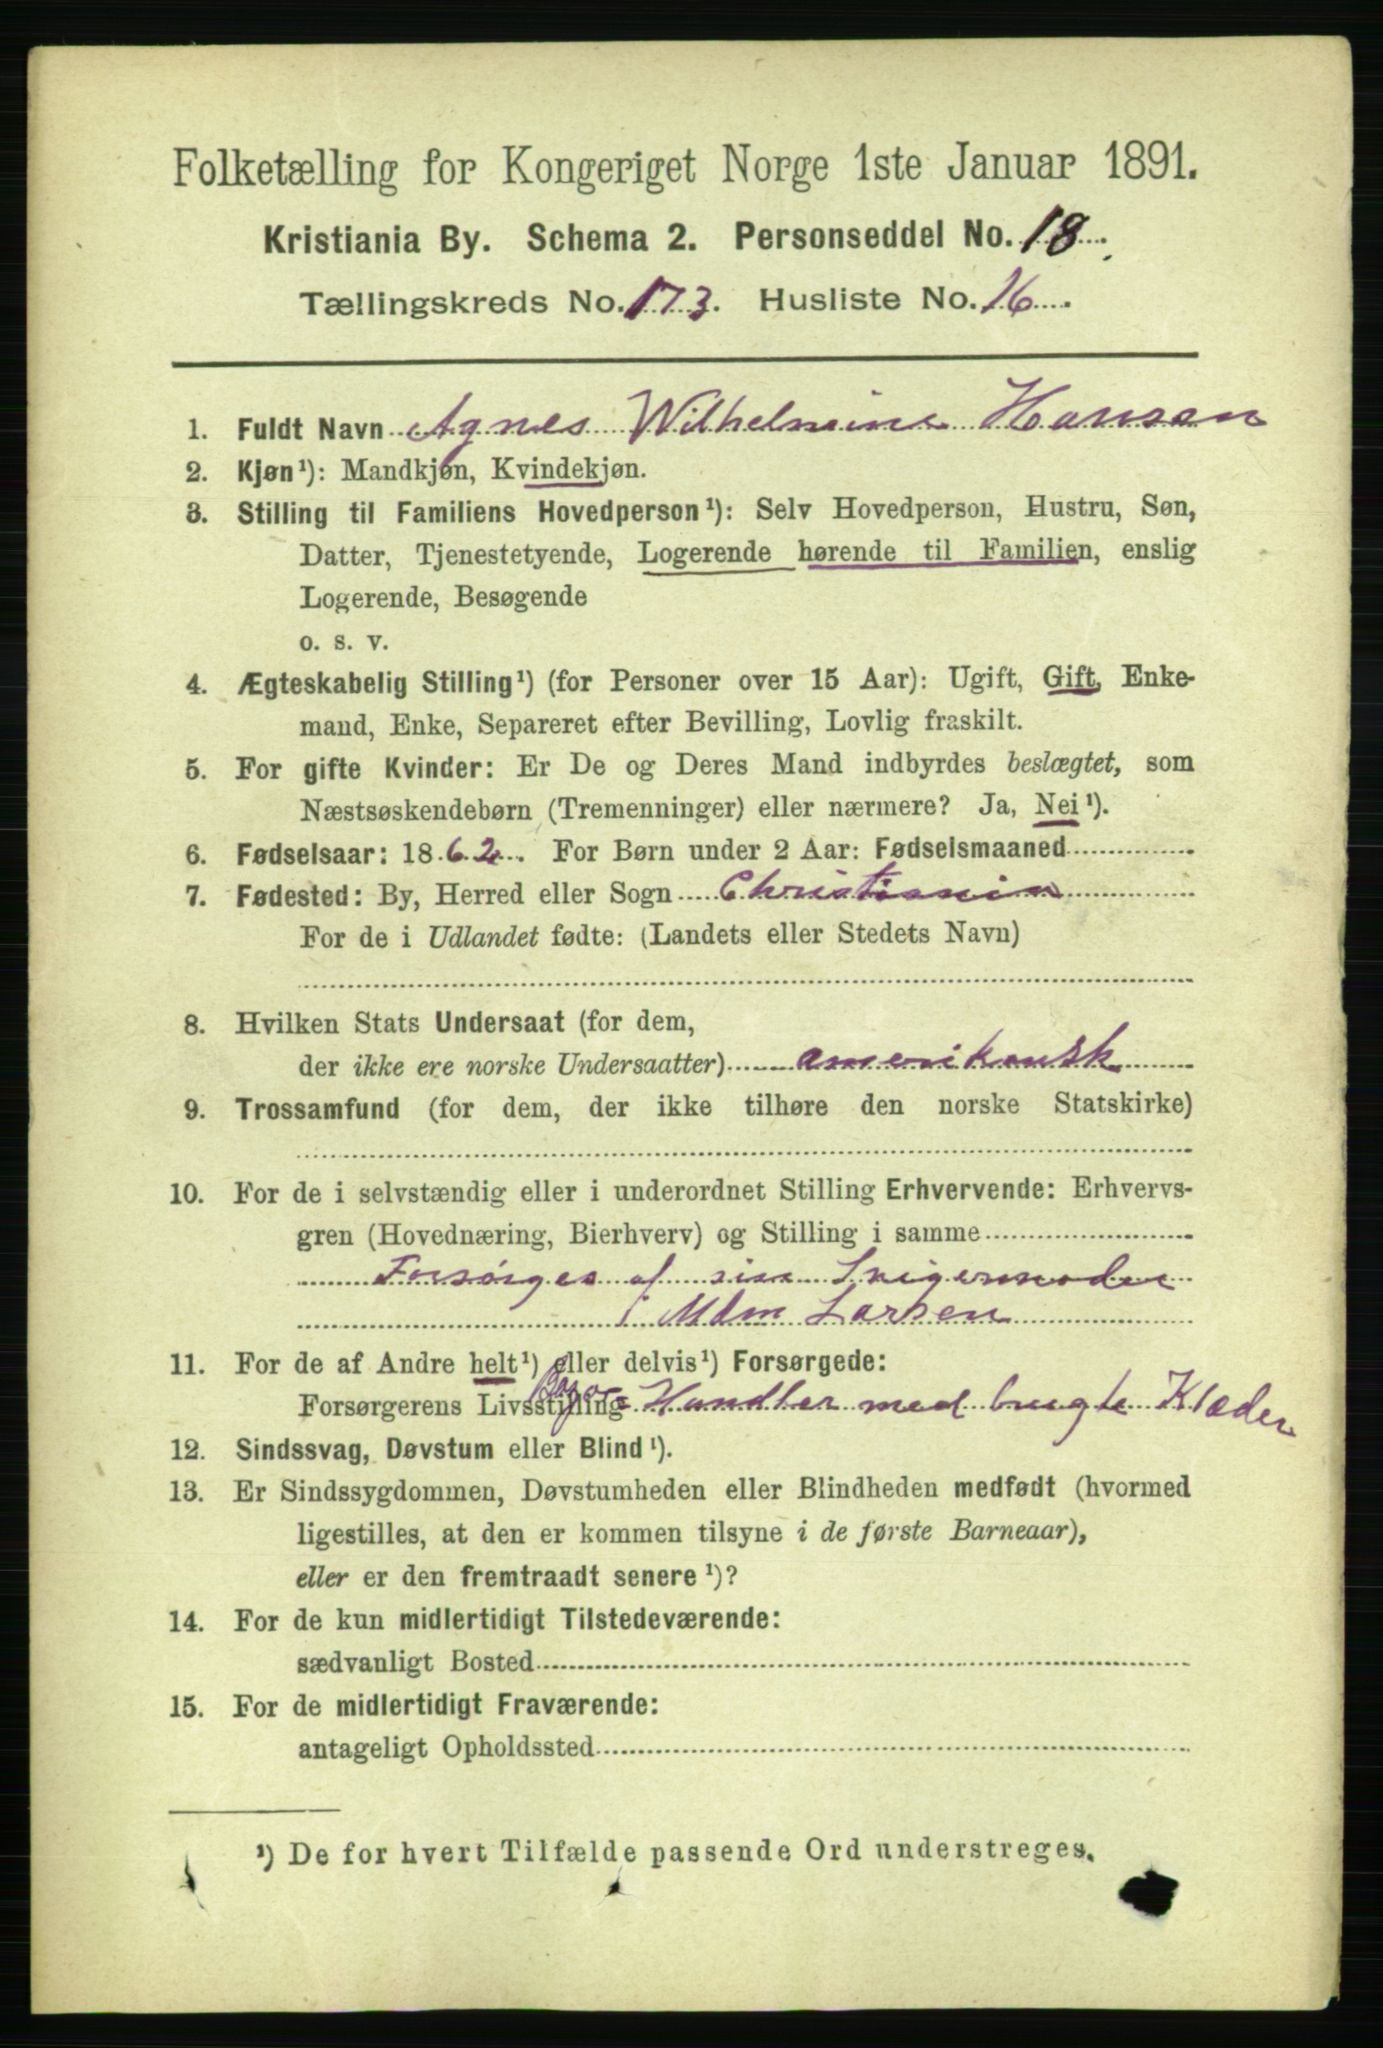 Folketælling for Kongeriget Norge 1ste Januar 1891.
Kristiania By. Schema 2. Personseddel No. 18.
Tællingskreds No. 173. Husliste No. 16.
1. Fuldt Navn Agnes Wilhelmine Hansen
2. Kjøn¹): Mandkjøn, Kvindekjøn.
3. Stilling til Familiens Hovedperson¹): Selv Hovedperson, Hustru, Søn,
Datter, Tjenestetyende, Logerende hørende til Familien, enslig
Logerende, Besøgende
o. s. v.
4. Ægteskabelig Stilling¹) (for Personer over 15 Aar): Ugift, Gift, Enke-
mand, Enke, Separeret efter Bevilling, Lovlig fraskilt.
5. For gifte Kvinder: Er De og Deres Mand indbyrdes beslægtet, som
Næstsøskendebørn (Tremenninger) eller nærmere? Ja, Nei¹).
6. Fødselsaar: 1862. For Børn under 2 Aar: Fødselsmaaned
7. Fødested: By, Herred eller Sogn Christiania
For de i Udlandet fødte: (Landets eller Stedets Navn)
8. Hvilken Stats Undersaat (for dem,
der ikke ere norske Undersaatter) amerikansk
9. Trossamfund (for dem, der ikke tilhøre den norske Statskirke)
10. For de i selvstændig eller i underordnet Stilling Erhvervende: Erhvervs-
gren (Hovednæring, Bierhverv) og Stilling i samme
Forsørges af sin Svigermoder
Mdm Larsen
11. For de af Andre helt¹) eller delvis¹) Forsørgede:
Forsørgerens Livsstilling Handler med brugte Klæder
12. Sindssvag, Døvstum eller Blind¹).
13. Er Sindssygdommen, Døvstumheden eller Blindheden medfødt (hvormed
ligestilles, at den er kommen tilsyne i de første Barneaar),
eller er den fremtraadt senere¹)?
14. For de kun midlertidigt Tilstedeværende:
sædvanligt Bosted
15. For de midlertidigt Fraværende:
antageligt Opholdssted
¹) De for hvert Tilfælde passende Ord understreges.